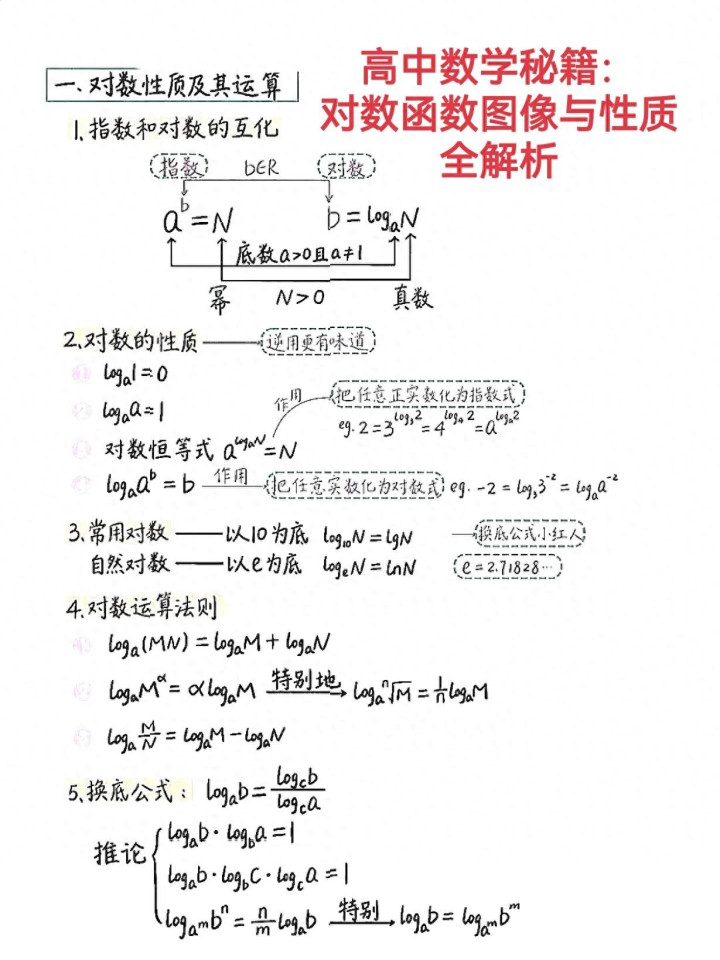 高中数学秘籍:
对数函数图像与性质
全解析
一、对数性质及其运算
1.指数和对数的互化
指数 b∈R 对数
a^b=N b=log_a N
底数a>0且a≠1
幂 N>0 真数
2.对数的性质——逆用更有味道
① log_a 1=0
② log_a a=1
作用 把任意正实数化为指数式
eg. 2=3^{log_3 2}=4^{log_4 2}=a^{log_a 2}
③ 对数恒等式 a^{log_a N}=N
④ log_a a^b=b 作用 把任意实数化为对数式 eg. -2=log_3 3^{-2}=log_a a^{-2}
3.常用对数——以10为底 log_10 N=lgN —换底公式小红人
自然对数——以e为底 log_e N=lnN e=2.71828…
4.对数运算法则
① log_a(MN)=log_a M+log_a N
② log_a M^α=αlog_a M 特别地→ log_a ⁿ√M=1/n log_a M
③ log_a M/N=log_a M-log_a N
5.换底公式: log_a b=log_c b/log_c a
推论
log_a b·log_b a=1
log_a b·log_b c·log_c a=1
log_{a^m} b^n=n/m log_a b 特别→ log_a b=log_{a^m} b^m